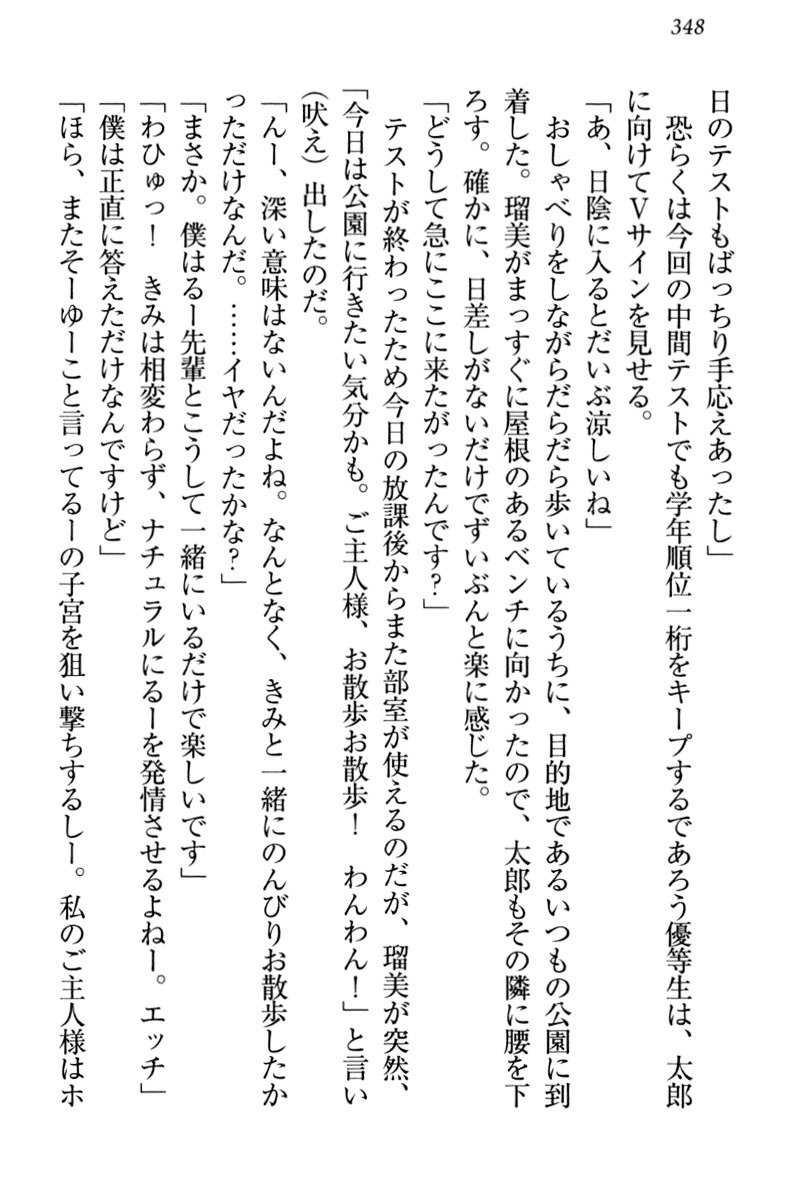 348
日のテストもばっちり手応えあったし」
　恐らくは今回の中間テストでも学年順位一桁をキープするであろう優等生は、太郎
に向けてＶサインを見せる。
「あ、日陰に入るとだいぶ涼しいね」
　おしゃべりをしながらだらだら歩いているうちに、目的地であるいつもの公園に到
着した。瑠美がまっすぐに屋根のあるベンチに向かったので、太郎もその隣に腰を下
ろす。確かに、日差しがないだけでずいぶんと楽に感じた。
「どうして急にここに来たがったんです？」
　テストが終わったため今日の放課後からまた部室が使えるのだが、瑠美が突然、
「今日は公園に行きたい気分かも。ご主人様、お散歩お散歩！　わんわん！」と言い
（吠え）出したのだ。
「んー、深い意味はないんだよね。なんとなく、きみと一緒にのんびりお散歩したか
っただけなんだ。……イヤだったかな？」
「まさか。僕はるー先輩とこうして一緒にいるだけで楽しいです」
「わひゅっ！　きみは相変わらず、ナチュラルにるーを発情させるよねー。エッチ」
「僕は正直に答えただけなんですけど」
「ほら、またそーゆーこと言ってるーの子宮を狙い撃ちするしー。私のご主人様はホ